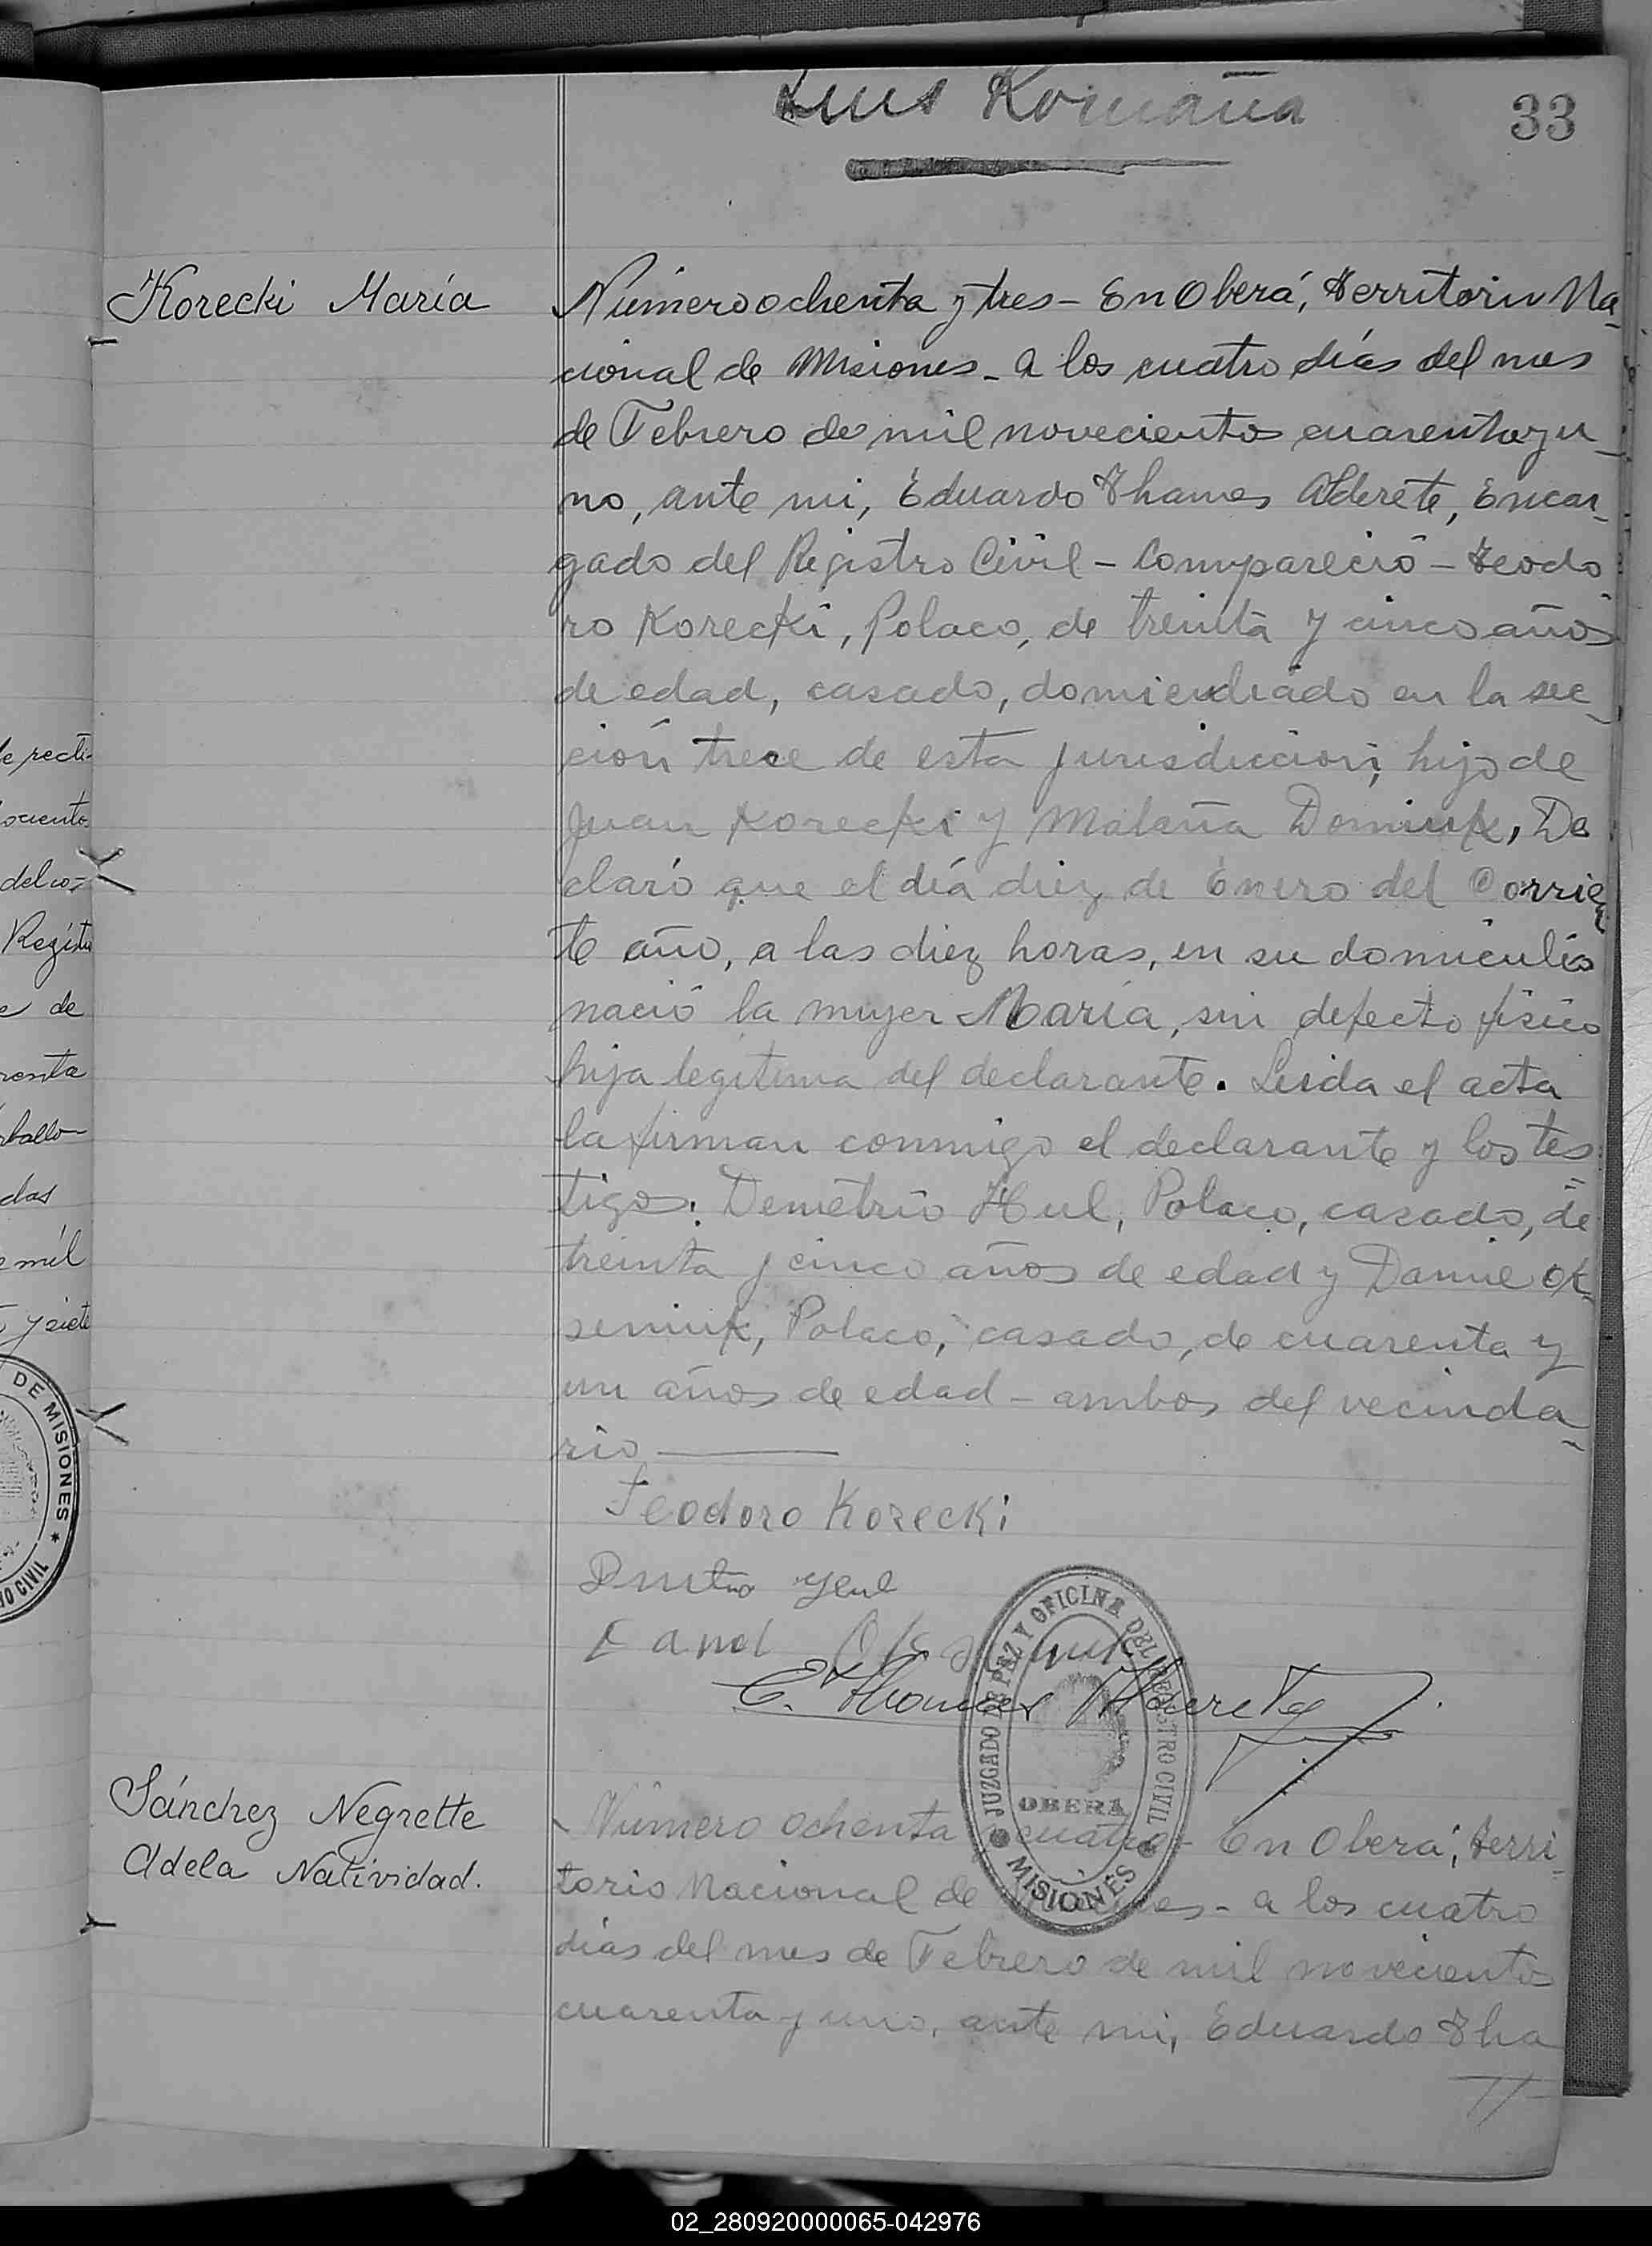 Luis Romaña
33
Korecki María
Número ochenta y tres - En Oberá, Territorio Na-
cional de Misiones - a los cuatro días del mes
de Febrero de mil novecientos cuarenta y u-
no, ante mi, Eduardo Thames Alderete, Encar-
gado del Registro Civil - Compareció - Teodo
ro Korecki, Polaco, de treinta y cinco años
de edad, casado, domiciliado en la sec-
ción trece de esta jurisdiccion, hijo de
Juan Korecki y Malaña Domiuk, De
claró que el día diez de Enero del Corrien
te año, a las diez horas, en su domicilio
nació la mujer María, sin defecto físico
hija legítima del declarante. Leida el acta
la firman conmigo el declarante y los tes
tigos: Demetrio Hul, Polaco, casado, de
treinta y cinco años de edad y Danie Ok-
seniuk, Polaco, casado, de cuarenta y
un años de edad - ambos del vecinda-
rio
Teodoro Korecki
E. Thames Alderete
JUZGADO DE PAZ Y OFICINA DEL REGISTRO CIVIL
OBERA
MISIONES
Sánchez Negrette
Adela Natividad.
Número ochenta y cuatro - En Oberá, Terri-
torio Nacional de Misiones - a los cuatro
dias del mes de Febrero de mil novecientos
cuarenta y uno, ante mi, Eduardo Tha
e recti-
ocientos
del co-
Registro
de
renta
rballo-
das
mil
y siete
DE MISIONES
CIVIL
02_280920000065-042976